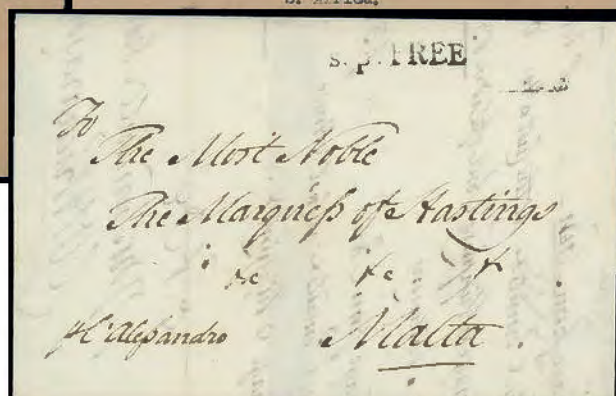 S. Africa.
s. p. FREE
To
The Most Noble
The Marqueſs of Hastings
&c &c &
pl' Aleſsandro Malta.